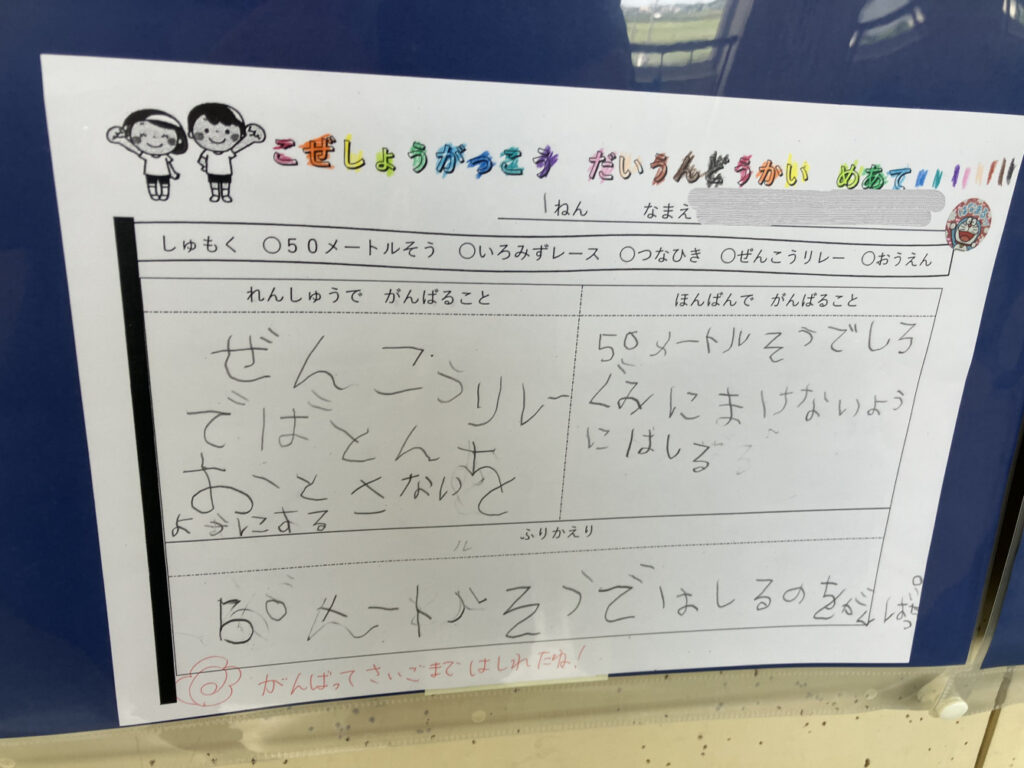 こぜしょうがっこう だいうんどうかい めあて
1ねん なまえ
しゅもく ○50メートルそう ○いろみずレース ○つなひき ○ぜんこうリレー ○おうえん
れんしゅうで がんばること
ぜんこうリレー
でばとんを
おとさないよ
ようにする
ほんばんで がんばること
50メートルそうでしろ
ぐみにまけないよう
にはしる
ふりかえり
50メートルそうではしるのをがんばった。
がんばってさいごまではしれたね!